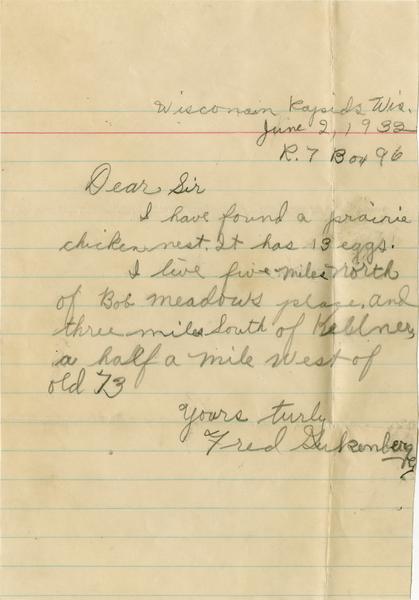 Wisconsin Rapids Wis.
June 2, 1932
R. 7 Box 96
Dear Sir
I have found a prairie
chicken nest. It has 13 eggs.
I live five miles north
of Bob meadows place, and
three miles South of Kellner,
a half a mile west of
old 73
Yours turly
Fred